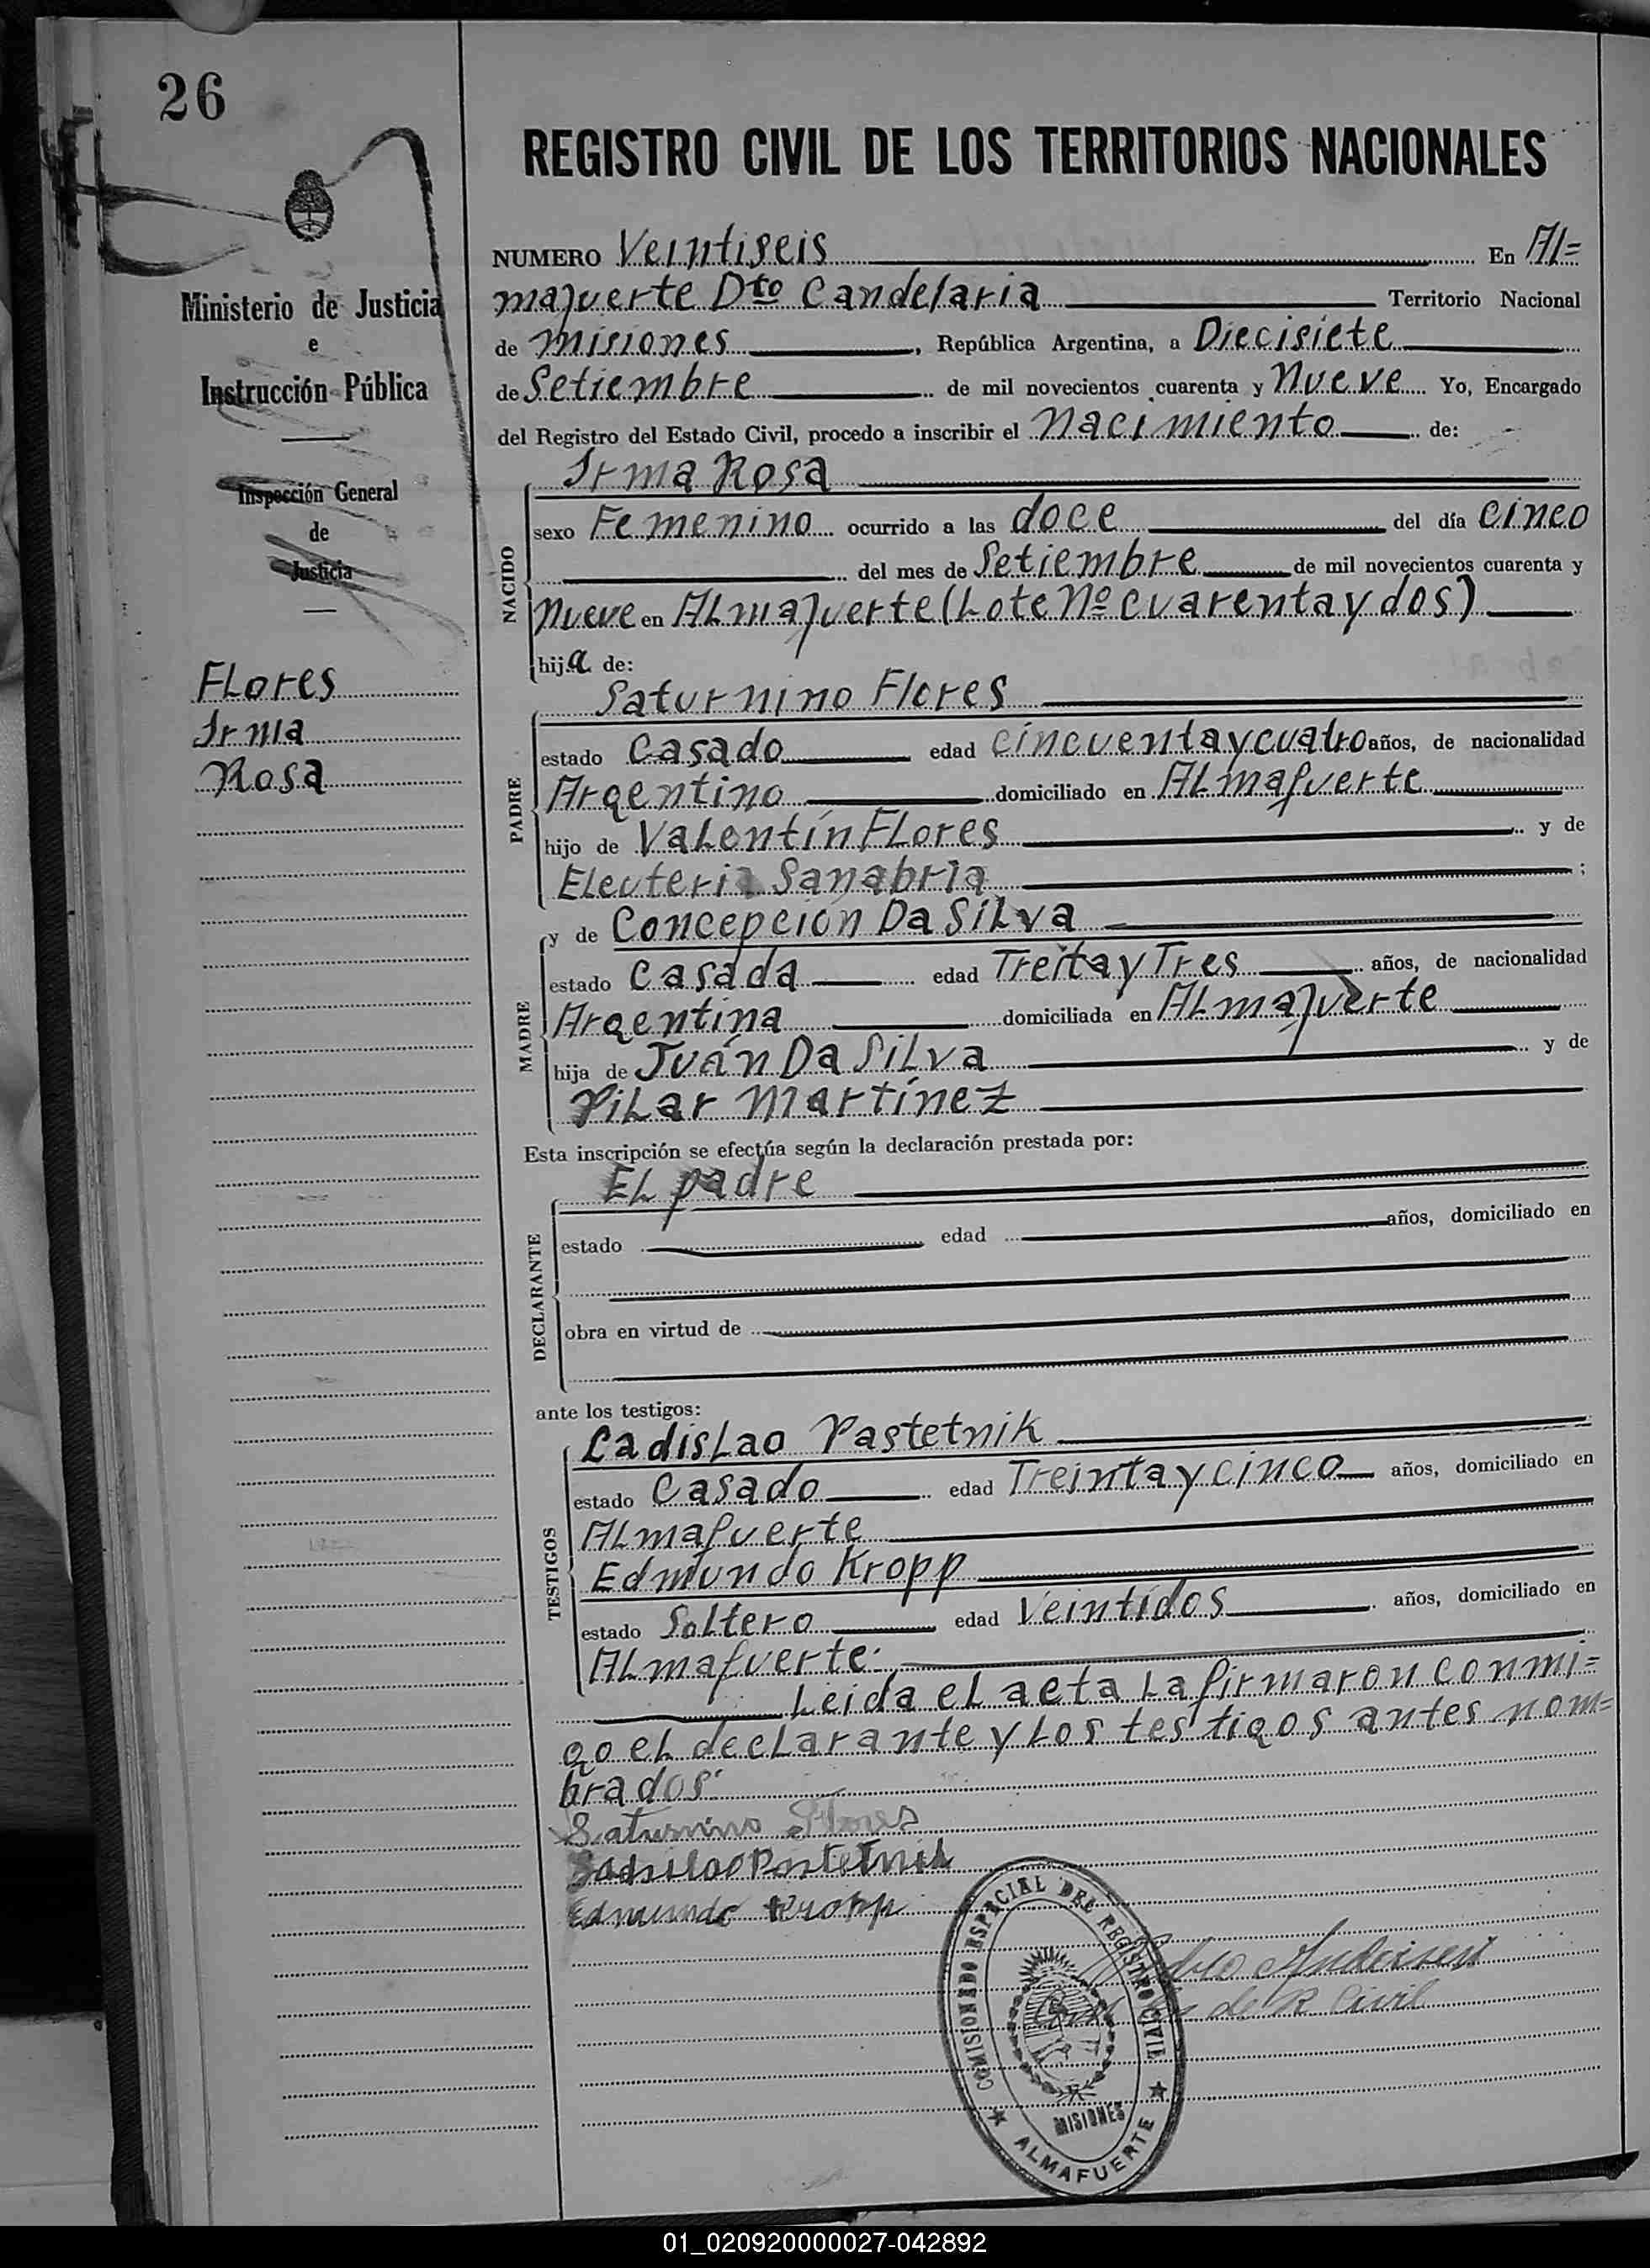 26
REGISTRO CIVIL DE LOS TERRITORIOS NACIONALES
Ministerio de Justicia
e
Instrucción Pública
Inspección General
de
Justicia
Flores
Irma
Rosa
NUMERO Veintiseis En Al=
mafuerte Dto Candelaria Territorio Nacional
de misiones, República Argentina, a Diecisiete
de Setiembre de mil novecientos cuarenta y nueve Yo, Encargado
del Registro del Estado Civil, procedo a inscribir el nacimiento de:
NACIDO
Irma Rosa
sexo Femenino ocurrido a las doce del día cinco
del mes de Setiembre de mil novecientos cuarenta y
nueve en Almafuerte (Lote Nº cuarenta y dos)
hija de:
PADRE
Saturnino Flores
estado Casado edad cincuenta y cuatro años, de nacionalidad
Argentino domiciliado en Almafuerte
hijo de Valentín Flores y de
Eleuteria Sanabria;
MADRE
y de Concepción Da Silva
estado Casada edad Treita y Tres años, de nacionalidad
Argentina domiciliada en Almafuerte
hija de Juán Da Silva y de
Pilar Martínez
Esta inscripción se efectúa según la declaración prestada por:
DECLARANTE
El padre
estado edad años, domiciliado en
obra en virtud de
ante los testigos:
TESTIGOS
Ladislao Pastetnik
estado Casado edad Treinta y cinco años, domiciliado en
Almafuerte
Edmundo Kropp
estado Soltero edad Veintidos años, domiciliado en
Almafuerte.
Leida el acta la firmaron conmi=
go el declarante y los testigos antes nom=
brados.
Saturnino Flores
Ladislao Pastetnik
Edmundo Kropp
Andersen
de R Civil
COMISIONADO ESPECIAL DEL REGISTRO CIVIL
MISIONES
ALMAFUERTE
01_020920000027-042892